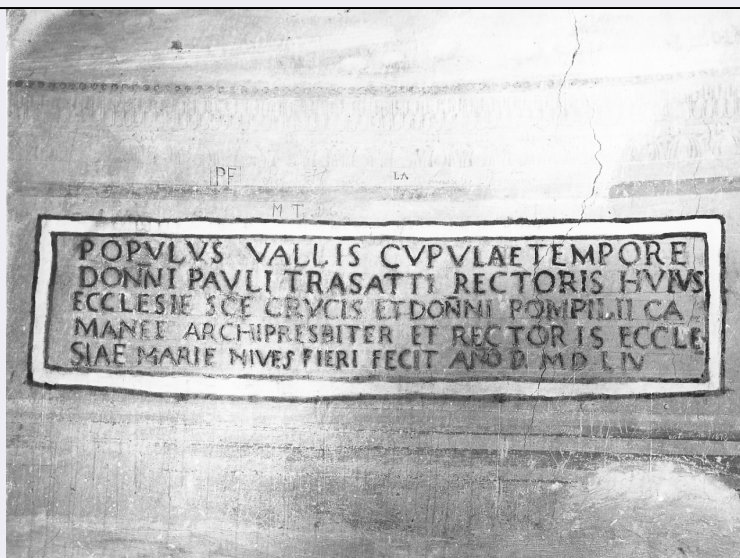 PF
LA
M T
POPVLVS VALLIS CVPVLAE TEMPORE
DONNI PAVLI TRASATTI RECTORIS HVIVS
ECCLESIE SCE CRVCIS ET DOÑNI POMPILII CA
MANEI ARCHIPRESBITER ET RECTORIS ECCLE
SIAE MARIE NIVES FIERI FECIT AÑO D MD LIV